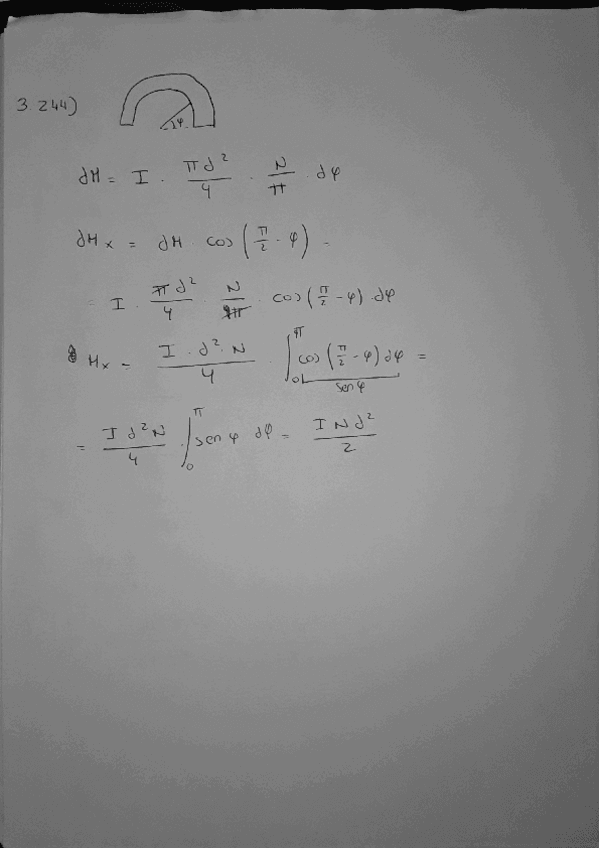 3.244)
φ
dM = I · πd²/4 · N/π · dφ
dMx = dM · cos(π/2 - φ) =
= I · πd²/4 · N/π · cos(π/2 - φ) · dφ
Mx = I · d² · N/4 · ∫₀^π cos(π/2 - φ) dφ =
sen φ
= I d² N/4 · ∫₀^π sen φ dφ = I N d²/2